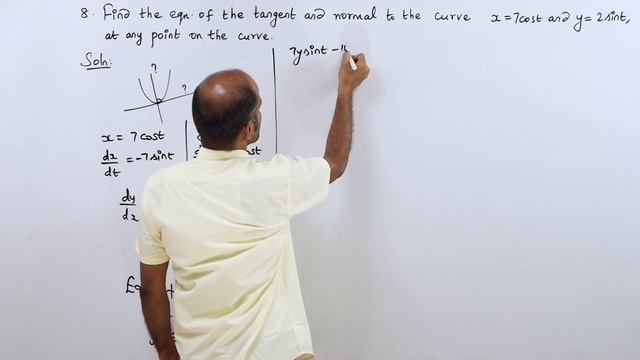 8. Find the eqn. of the tangent and normal to the curve x = 7cost and y = 2sint,
at any point on the curve.
Soln:
?
?
x = 7cost
dx/dt = -7sint
dy/dx
7ysint - 1